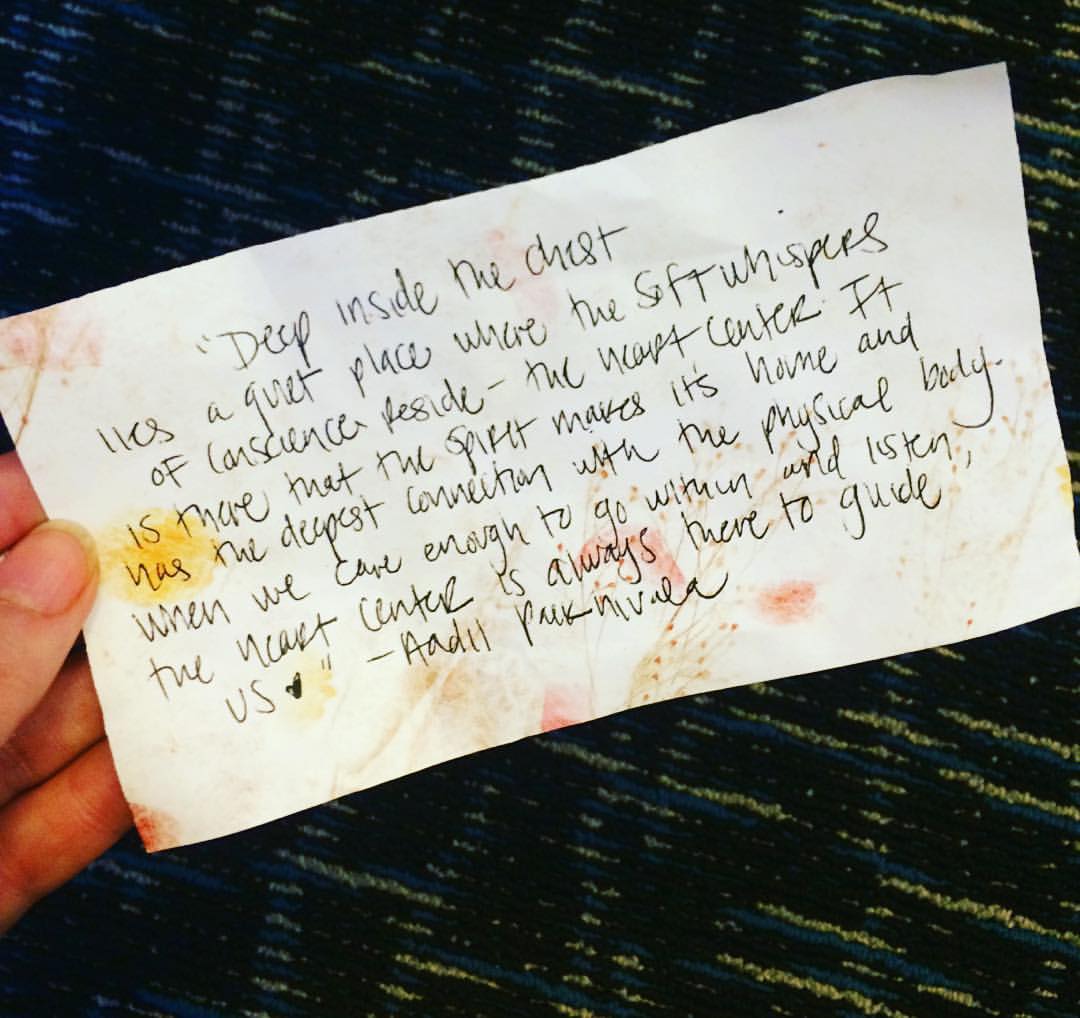 "Deep inside the chest
lies a quiet place where the soft whispers
of conscience reside - the heart center. It
is there that the spirit makes it's home and
has the deepest connection with the physical body.
When we care enough to go within and listen,
the heart center is always there to guide
us ♥" - Aadil Palkhivala